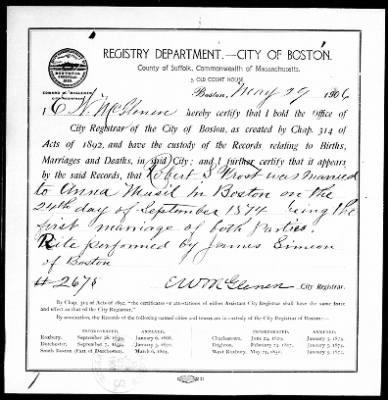 REGISTRY DEPARTMENT.—CITY OF BOSTON.
County of Suffolk, Commonwealth of Massachusetts.
OLD COURT HOUSE
EDWARD W. McGLENEN
CITY REGISTRAR
Boston, May 29 1906
I, E W McGlenen hereby certify that I hold the office of
City Registrar of the City of Boston, as created by Chap. 314 of
Acts of 1892, and have the custody of the Records relating to Births,
Marriages and Deaths, in said City; and I further certify that it appears
by the said Records, that Robert S Frost was married
to Anna in Boston on the
24th day of September 1874 being the
first marriage of both Parties
Rite performed by James Simeon
of Boston
# 2678
EW McGlenen City Registrar.
By Chap. 314 of Acts of 1892, "the certificates or attestations of either Assistant City Registrar shall have the same force
and effect as that of the City Registrar."
By annexation, the Records of the following named cities and towns are in custody of the City Registrar of Boston:—
INCORPORATED. ANNEXED. INCORPORATED. ANNEXED.
Roxbury, January 6, 1868. Charlestown, January 5, 1874.
Dorchester, January 3, 1870. Brighton, January 5, 1874.
South Boston (Part of Dorchester), March 6, 1804. West Roxbury, January 5, 1874.